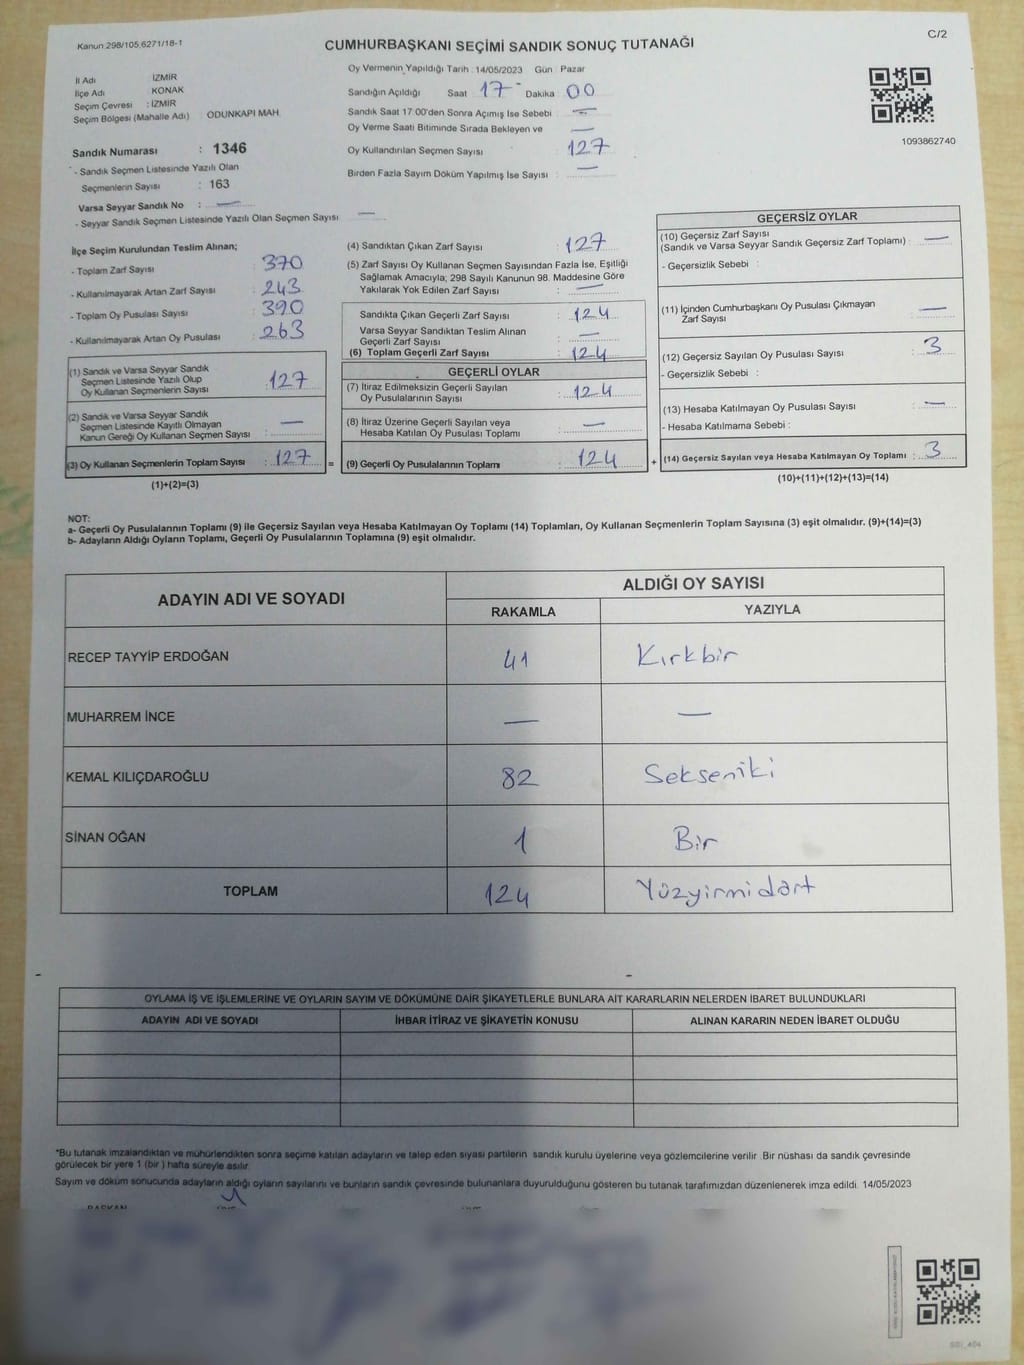 Kanun 298/105,6271/18-1
CUMHURBAŞKANI SEÇİMİ SANDIK SONUÇ TUTANAĞI
C/2
İl Adı İZMİR
İlçe Adı KONAK
Seçim Çevresi : İZMİR
Seçim Bölgesi (Mahalle Adı) : ODUNKAPI MAH.
Sandık Numarası : 1346
- Sandık Seçmen Listesinde Yazılı Olan
Seçmenlerin Sayısı : 163
Varsa Seyyar Sandık No : —
- Seyyar Sandık Seçmen Listesinde Yazılı Olan Seçmen Sayısı : —
Oy Vermenin Yapıldığı Tarih : 14/05/2023 Gün : Pazar
Sandığın Açıldığı Saat 17 Dakika 00
Sandık Saat 17:00'den Sonra Açımış İse Sebebi : —
Oy Verme Saati Bitiminde Sırada Bekleyen ve —
Oy Kullandırılan Seçmen Sayısı : 127
Birden Fazla Sayım Döküm Yapılmış İse Sayısı : —
1093862740
İlçe Seçim Kurulundan Teslim Alınan;
- Toplam Zarf Sayısı : 370
- Kullanılmayarak Artan Zarf Sayısı : 243
- Toplam Oy Pusulası Sayısı : 390
- Kullanılmayarak Artan Oy Pusulası : 263
(1) Sandık ve Varsa Seyyar Sandık
Seçmen Listesinde Yazılı Olup
Oy Kullanan Seçmenlerin Sayısı : 127
(2) Sandık ve Varsa Seyyar Sandık
Seçmen Listesinde Kayıtlı Olmayan
Kanun Gereği Oy Kullanan Seçmen Sayısı : —
(3) Oy Kullanan Seçmenlerin Toplam Sayısı : 127 =
(1)+(2)=(3)
(4) Sandıktan Çıkan Zarf Sayısı : 127
(5) Zarf Sayısı Oy Kullanan Seçmen Sayısından Fazla İse, Eşitliği
Sağlamak Amacıyla; 298 Sayılı Kanunun 98. Maddesine Göre
Yakılarak Yok Edilen Zarf Sayısı : —
Sandıkta Çıkan Geçerli Zarf Sayısı : 124
Varsa Seyyar Sandıktan Teslim Alınan
Geçerli Zarf Sayısı : —
(6) Toplam Geçerli Zarf Sayısı : 124
GEÇERLİ OYLAR
(7) İtiraz Edilmeksizin Geçerli Sayılan
Oy Pusulalarının Sayısı : 124
(8) İtiraz Üzerine Geçerli Sayılan veya
Hesaba Katılan Oy Pusulası Toplamı : —
(9) Geçerli Oy Pusulalarının Toplamı : 124 +
GEÇERSİZ OYLAR
(10) Geçersiz Zarf Sayısı
(Sandık ve Varsa Seyyar Sandık Geçersiz Zarf Toplamı) : —
- Geçersizlik Sebebi :
(11) İçinden Cumhurbaşkanı Oy Pusulası Çıkmayan
Zarf Sayısı : —
(12) Geçersiz Sayılan Oy Pusulası Sayısı : 3
- Geçersizlik Sebebi :
(13) Hesaba Katılmayan Oy Pusulası Sayısı : —
- Hesaba Katılmama Sebebi :
(14) Geçersiz Sayılan veya Hesaba Katılmayan Oy Toplamı : 3
(10)+(11)+(12)+(13)=(14)
NOT:
a- Geçerli Oy Pusulalarının Toplamı (9) ile Geçersiz Sayılan veya Hesaba Katılmayan Oy Toplamı (14) Toplamları, Oy Kullanan Seçmenlerin Toplam Sayısına (3) eşit olmalıdır. (9)+(14)=(3)
b- Adayların Aldığı Oyların Toplamı, Geçerli Oy Pusulalarının Toplamına (9) eşit olmalıdır.
ADAYIN ADI VE SOYADI
ALDIĞI OY SAYISI
RAKAMLA YAZIYLA
RECEP TAYYİP ERDOĞAN 41 Kırkbir
MUHARREM İNCE — —
KEMAL KILIÇDAROĞLU 82 Sekseniki
SİNAN OĞAN 1 Bir
TOPLAM 124 Yüzyirmidört
OYLAMA İŞ VE İŞLEMLERİNE VE OYLARIN SAYIM VE DÖKÜMÜNE DAİR ŞİKAYETLERLE BUNLARA AİT KARARLARIN NELERDEN İBARET BULUNDUKLARI
ADAYIN ADI VE SOYADI İHBAR İTİRAZ VE ŞİKAYETİN KONUSU ALINAN KARARIN NEDEN İBARET OLDUĞU
*Bu tutanak imzalandıktan ve mühürlendikten sonra seçime katılan adayların ve talep eden siyasi partilerin sandık kurulu üyelerine veya gözlemcilerine verilir. Bir nüshası da sandık çevresinde
görülecek bir yere 1 (bir ) hafta süreyle asılır.
Sayım ve döküm sonucunda adayların aldığı oyların sayılarını ve bunların sandık çevresinde bulunanlara duyurulduğunu gösteren bu tutanak tarafımızdan düzenlenerek imza edildi. 14/05/2023